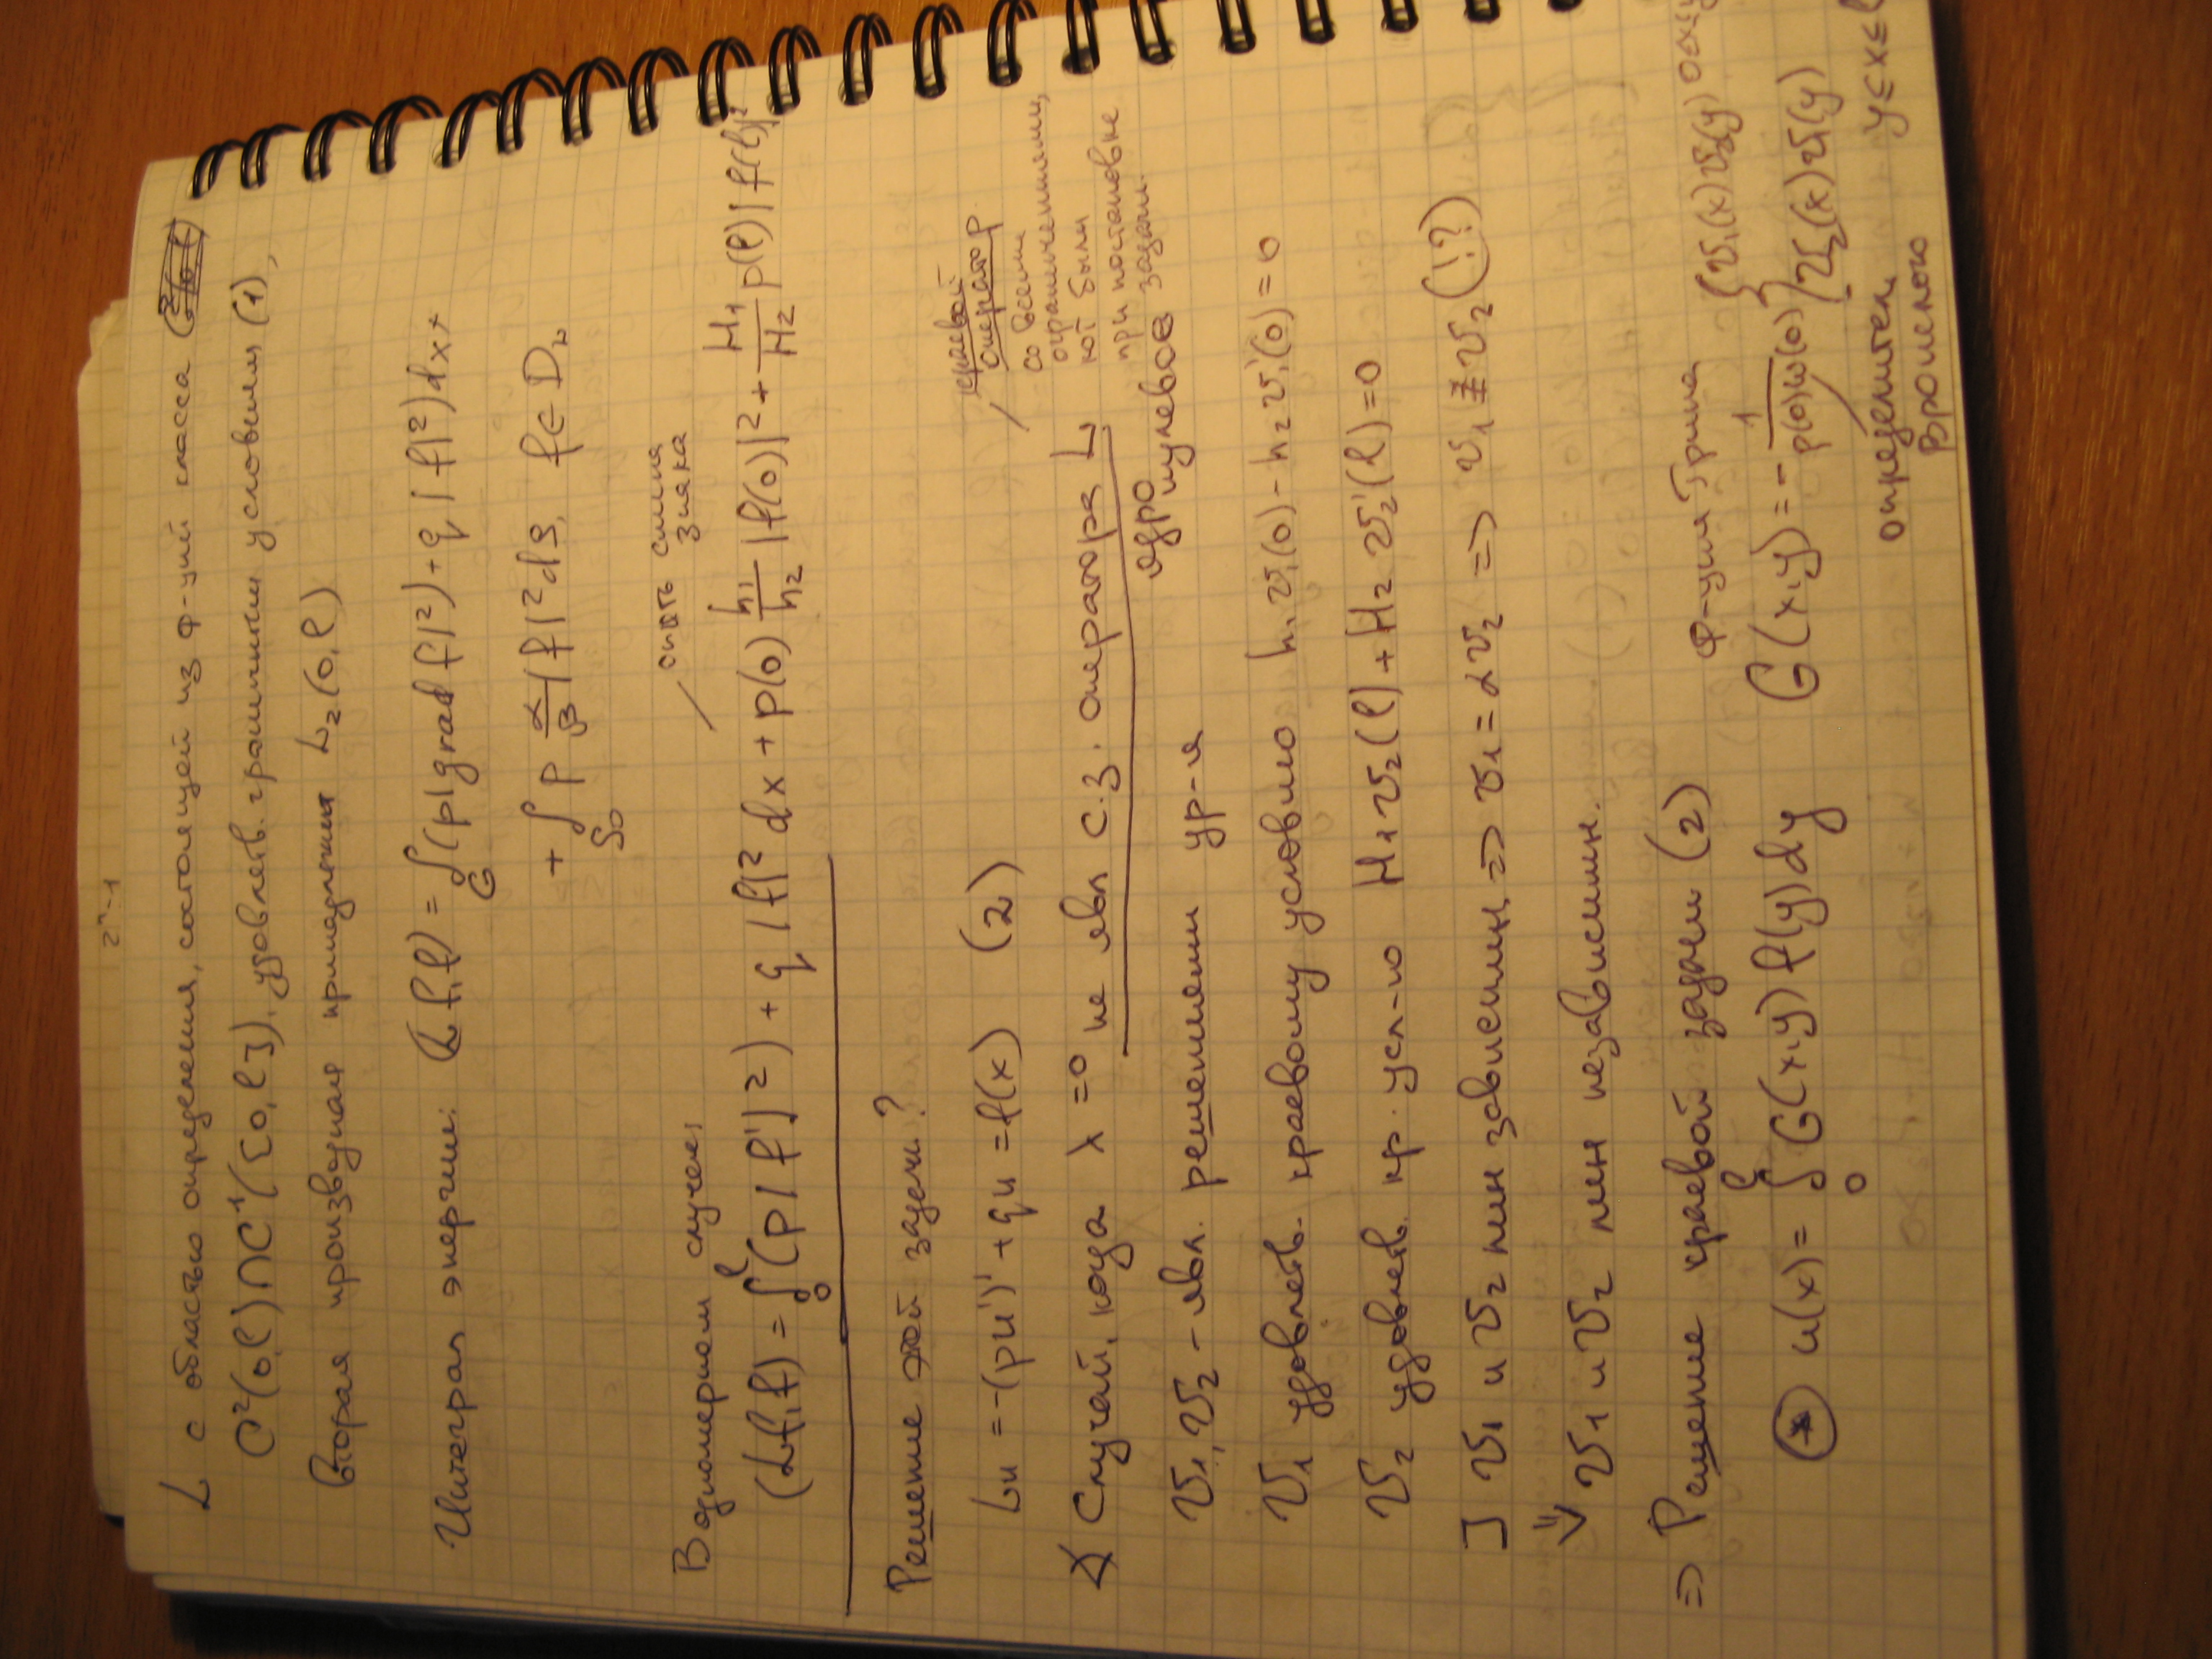 L с областью определения, состоящей из ф-ций класса
C²(0,l)∩C¹([0,l]), удовлетв. граничным условиям (1),
вторая производная принадлежит L₂(0,l)
Интеграл энергии: (Lf,f) = ∫_G (p|grad f|²) + q|f|²)dx +
+ ∫_{S₀} p α/β |f|² dS, f∈D_L
опять смена
знака
В одномерном случае:
(Lf,f) = ∫₀^l (p|f'|²) + q|f|² dx + p(0) h₁/h₂ |f(0)|² + H₁/H₂ p(l)|f(l)|²
Решение этой задачи?
краевой
оператор
Lu = -(pu')' + qu = f(x) (2)
со всеми
ограничениями,
кот были
при постановке
задачи.
Случай, когда λ=0 не явл с.з. оператора L
ядро нулевое
v₁, v₂ - явл. решениями ур-я
v₁ удовлетв. краевому условию h₁v₁(0) - h₂v₁'(0) = 0
v₂ удовлетв. кр. усл-ю H₁v₂(l) + H₂v₂'(l) = 0
] v₁ и v₂ лин зависимы => v₁ = αv₂ => v₁ ≢ v₂ (!?)
⇓ v₁ и v₂ лин независимы.
=> Решение краевой задачи (2)
Ф-ция Грина
(*) u(x) = ∫₀^l G(x,y) f(y)dy
G(x,y) = - 1/(p(0)w(0)) { v₁(x)v₂(y)
v₂(x)v₁(y)
y≤x≤
определитель
Вронского